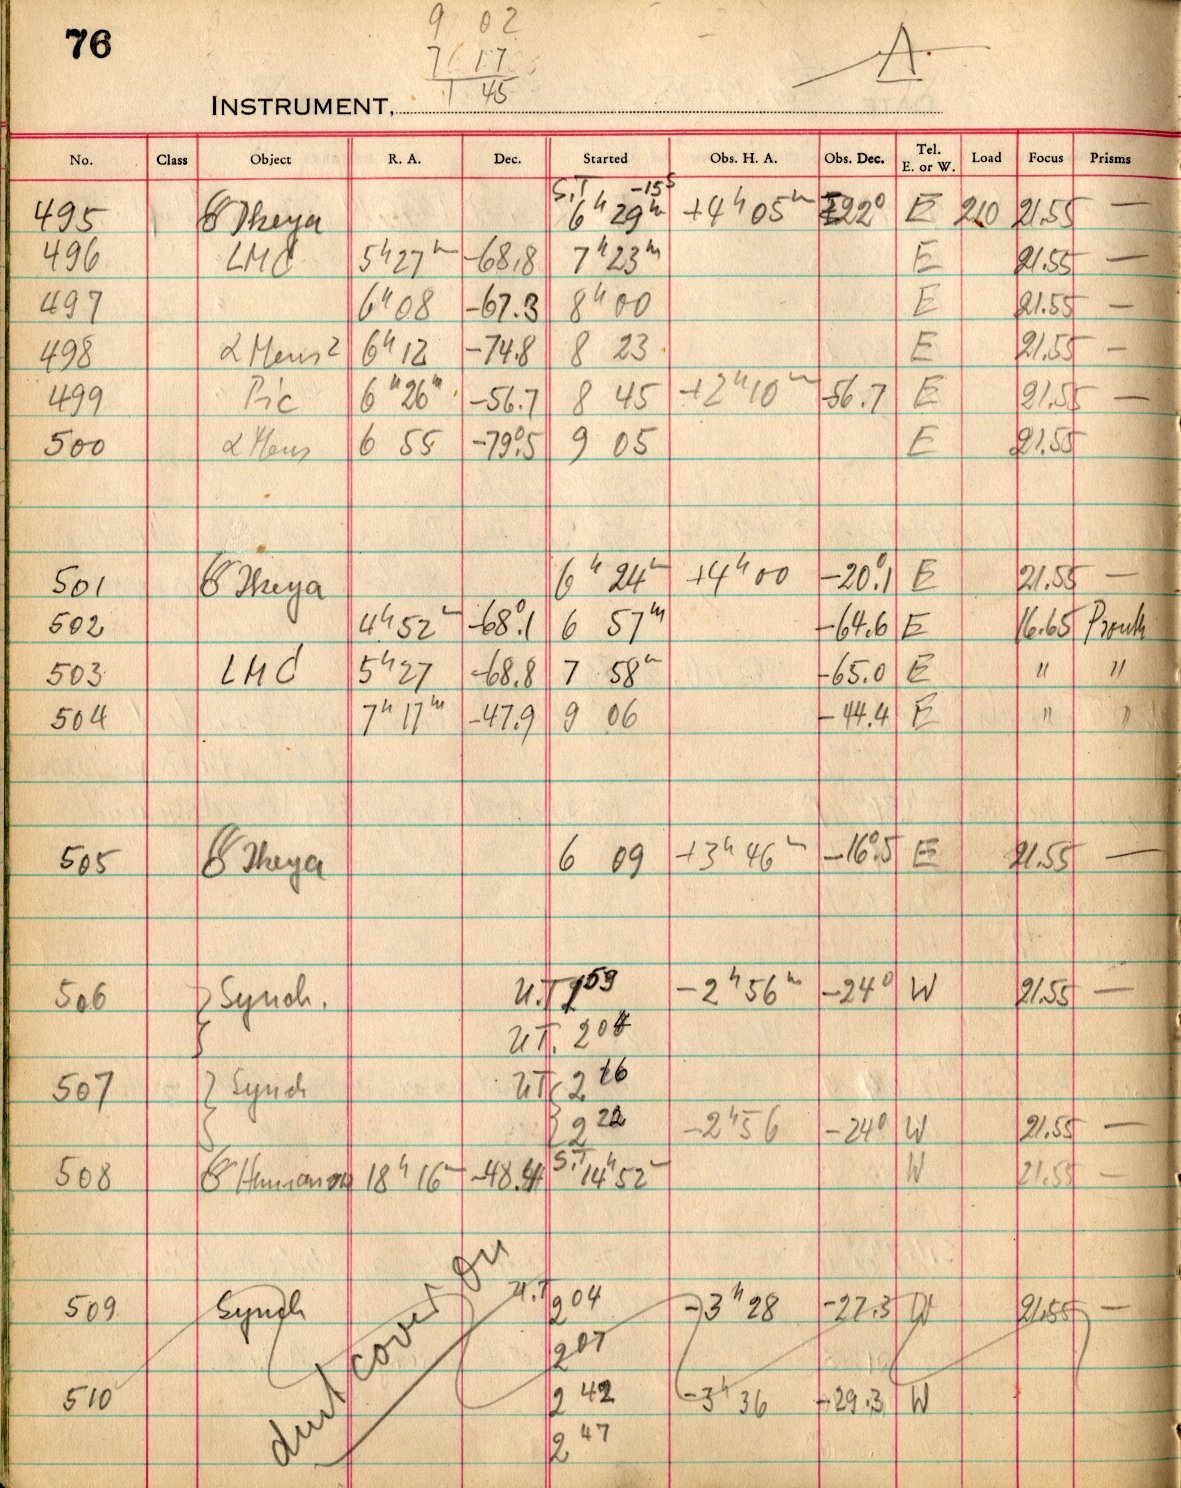 76
9 02
7 17
1 45
A.
INSTRUMENT,
No. Class Object R. A. Dec. Started Obs. H. A. Obs. Dec. Tel. E. or W. Load Focus Prisms
S.T -15s
495 Ikeya 6h 29m +4h 05m 22° E 210 21.55 —
496 LMC 5h27m -68.8 7h23m E 21.55 —
497 6h08 -67.3 8h00 E 21.55 —
498 α Mens2 6h12 -74.8 8 23 E 21.55 —
499 Pic 6h26m -56.7 8 45 +2h10m -56.7 E 21.55 —
500 α Mens 6 55 -79°.5 9 05 E 21.55
501 Ikeya 6h 24m +4h00 -20°.1 E 21.55 —
502 4h52m -68°.1 6 57m -64.6 E 16.65
503 LMC 5h27 -68.8 7 58m -65.0 E " "
504 7h17m -47.9 9 06 -44.4 E " "
505 Ikeya 6 09 +3h46m -16°.5 E 21.55 —
506 Synch. U.T 1 59 -2h56m -24° W 21.55 —
U.T. 2 04
507 Synch UT 2 16
2 22 -2h56 -24° W 21.55 —
508 Humason 18h16m -48.4 S.T 14h52m W 21.55 —
509 Synch U.T 2 04 -3h28 -27.3 W 21.55 —
2 07
510 2 42 -3h36 -29.3 W
2 47
dust cover on